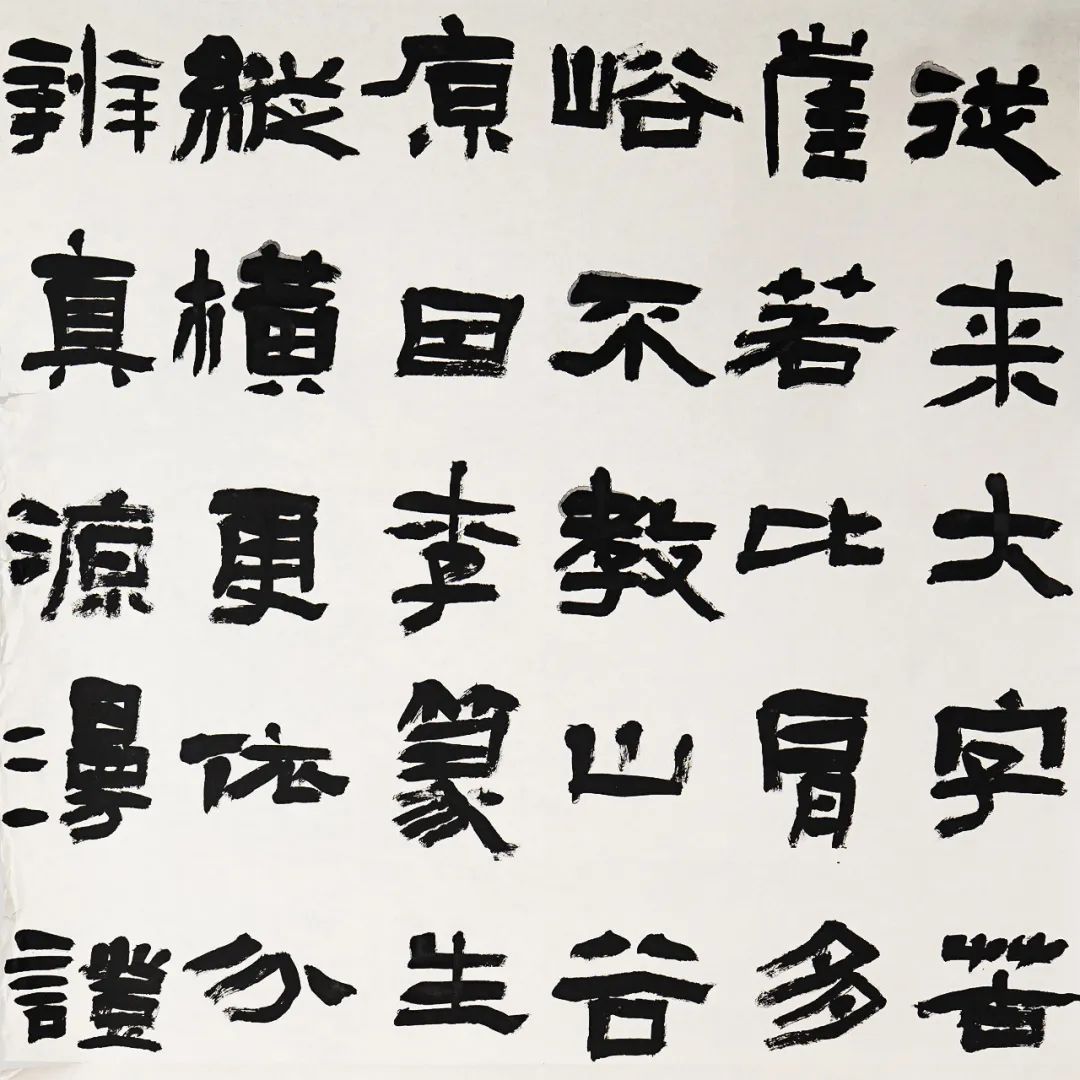 從来大字苦
崖若比冒多
峪不教山谷
原因李篆生
縱橫更依分
辨真源漫證